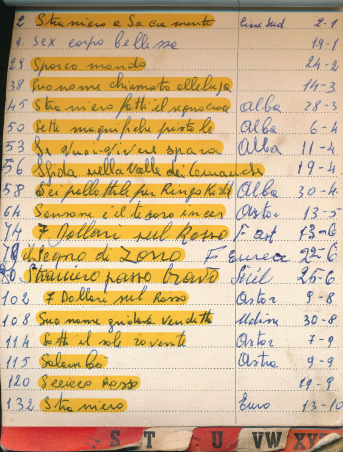 2 Straniero a Sacramento Cine Sud 2-1
9. Sex corpo bellezza 19-1
29 Sporco mondo 24-2
38 nome chiamato alleluja 14-3
45 Straniero fatti il segno croce Alba 28-3
50 Sette magnifiche pistole 6-4
53 Se Vuoi Vivere spara Alba 11-4
56 Sfida nella Valle dei Comanche 19-4
58 Sei pallottole per Ringo Alba 30-4
64 Sansone e il tesoro incas Astor 13-5
74 7 Dollari sul Rosso F 13-6
79 il segno di Zorro F Eurea 22-6
90 Straniero passo bravo 25-6
102 7 Dollari sul Rosso Astor 9-8
108 Suo nome gridava vendetta Udine 30-8
114 Sotto il sole rovente Astor 7-9
115 Salambò Astra 9-9
120 Sceicco Rosso 19-9
132 Straniero Euro 13-10
S T U VW XY